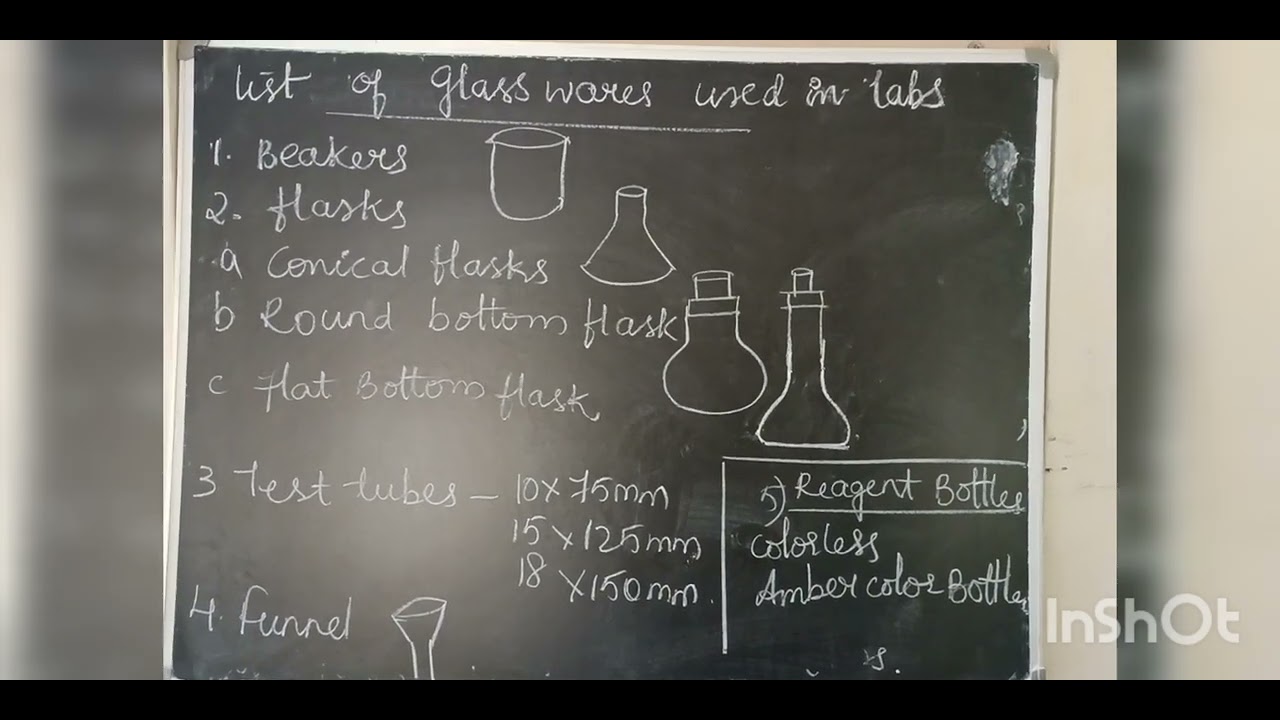 list of glass wares used in labs
1. Beakers
2. flasks
a Conical flasks
b Round bottom flask
c Flat Bottom flask
3 Test tubes – 10x75mm
15x125mm
18x150mm.
4. Funnel
5) Reagent Bottles
colorless
Amber color Bottles
InShOt